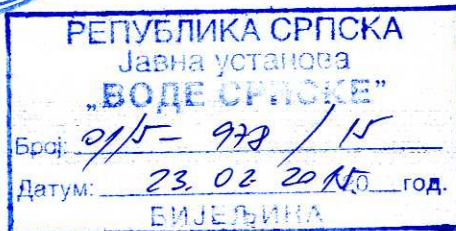 РЕПУБЛИКА СРПСКА
Јавна установа
„ВОДЕ СРПСКЕ”
Број: 01/5 - 978 / 15
Датум: 23. 02 2015.0 год.
БИЈЕЉИНА